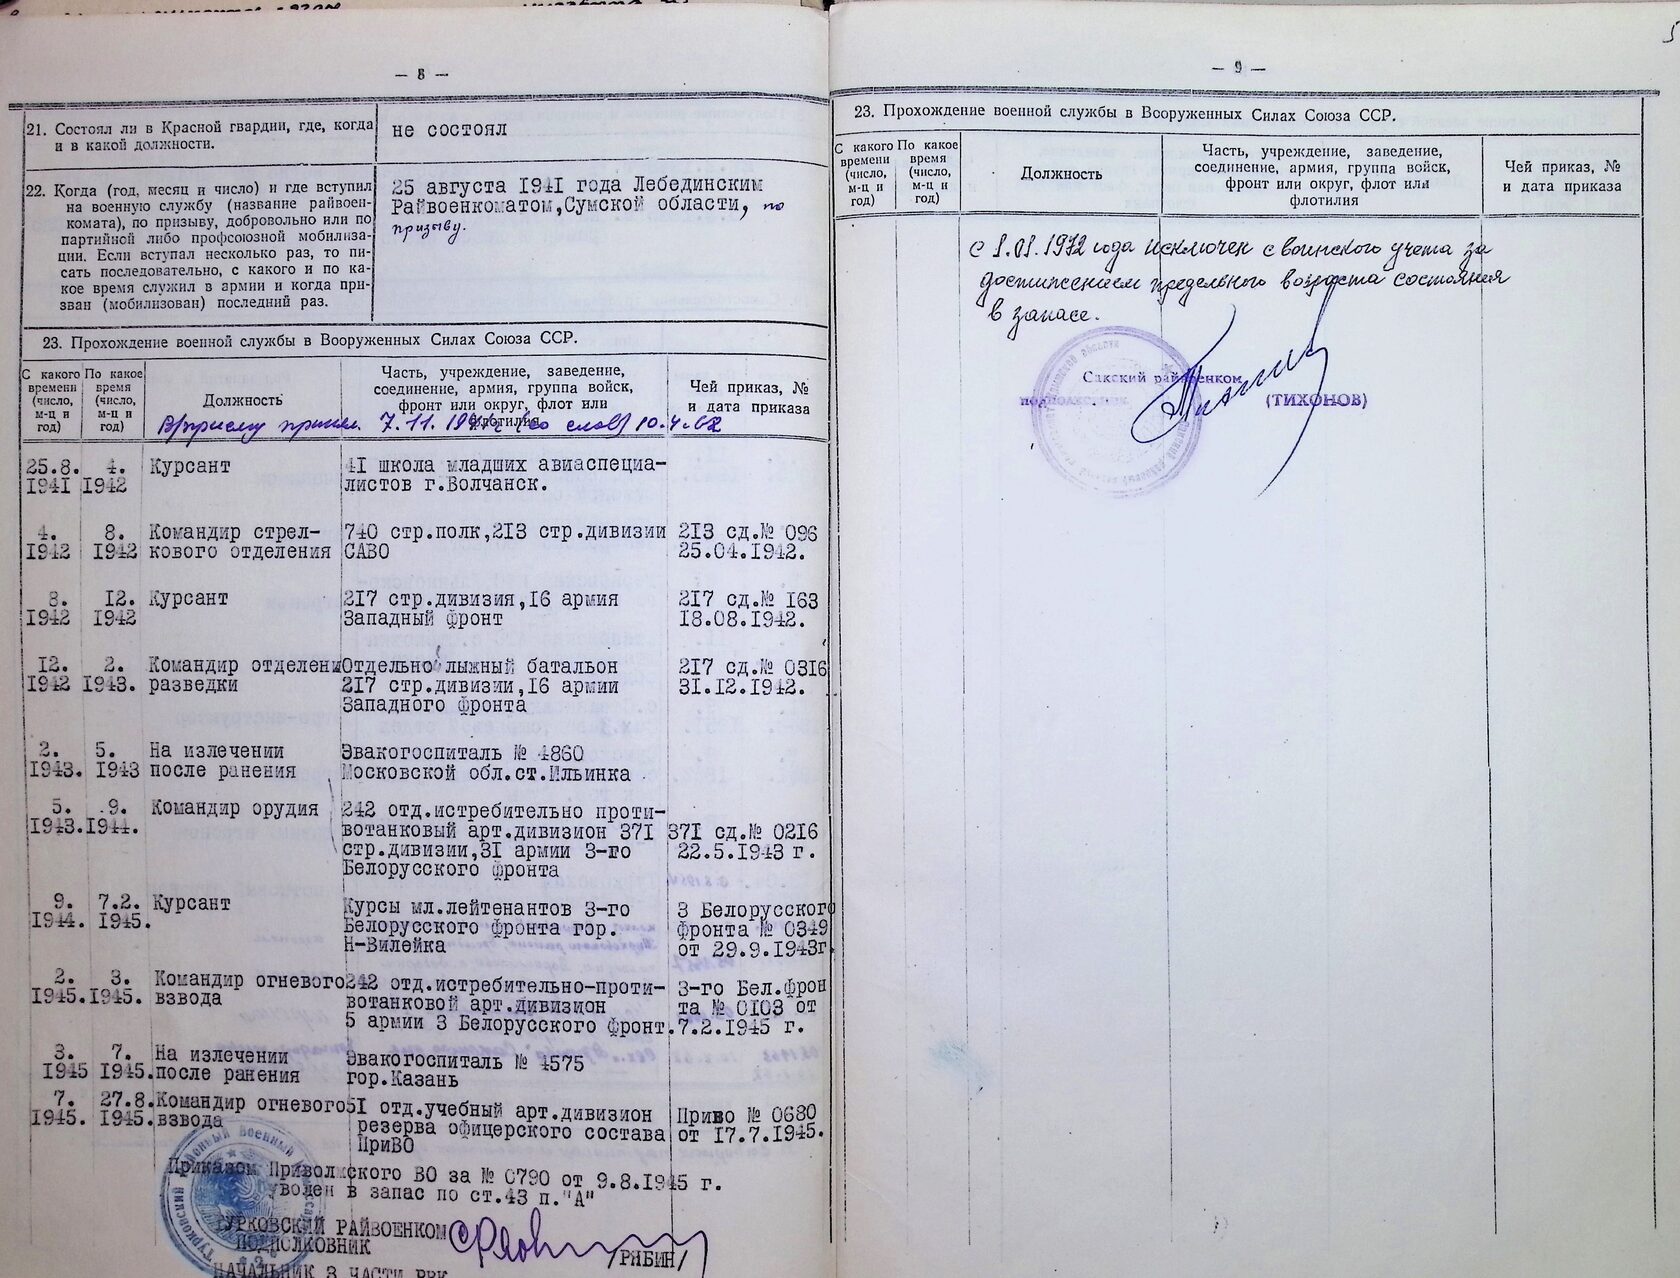 — 8 —
21. Состоял ли в Красной гвардии, где, когда
и в какой должности.
не состоял
22. Когда (год, месяц и число) и где вступил
на военную службу (название райвоен-
комата), по призыву, добровольно или по
партийной либо профсоюзной мобилиза-
ции. Если вступал несколько раз, то пи-
сать последовательно, с какого и по ка-
кое время служил в армии и когда при-
зван (мобилизован) последний раз.
25 августа 1941 года Лебединским
Райвоенкоматом,Сумской области, по
призыву.
23. Прохождение военной службы в Вооруженных Силах Союза ССР.
С какого времени (число, м-ц и год)
По какое время (число, м-ц и год)
Должность
Часть, учреждение, заведение,
соединение, армия, группа войск,
фронт или округ, флот или
флотилия
Чей приказ, №
и дата приказа
В/присягу принял 7.11. (со слов) 10.4.62
25.8. 4. Курсант 41 школа младших авиаспециа-
1941 1942 листов г.Волчанск.
4. 8. Командир стрел- 740 стр.полк,213 стр.дивизии 213 сд.№ 096
1942 1942 кового отделения САВО 25.04.1942.
8. 12. Курсант 217 стр.дивизия,16 армия 217 сд.№ 163
1942 1942 Западный фронт 18.08.1942.
12. 2. Командир отделени Отдельно лыжный батальон 217 сд.№ 0316
1942 1943. разведки 217 стр.дивизии,16 армии 31.12.1942.
Западного фронта
2. 5. На излечении Эвакогоспиталь № 4860
1943. 1943 после ранения Московской обл.ст.Ильинка
5. 9. Командир орудия 242 отд.истребительно проти-
1943. 1944. вотанковый арт.дивизион 371 371 сд.№ 0216
стр.дивизии,31 армии 3-го 22.5.1943 г.
Белорусского фронта
9. 7.2. Курсант Курсы мл.лейтенантов 3-го 3 Белорусского
1944. 1945. Белорусского фронта гор. фронта № 0349
Н-Вилейка от 29.9.1943г.
2. 3. Командир огневого 242 отд.истребительно-проти- 3-го Бел.фрон
1945. 1945. взвода вотанковой арт.дивизион та № 0103 от
5 армии 3 Белорусского фронт. 7.2.1945 г.
3. 7. На излечении Эвакогоспиталь № 4575
1945 1945. после ранения гор.Казань
7. 27.8. Командир огневого 51 отд.учебный арт.дивизион Приво № 0680
1945. 1945. взвода резерва офицерского состава от 17.7.1945.
ПриВО
Приказом Приволжского ВО за № 0790 от 9.8.1945 г.
уволен в запас по ст.43 п."А"
ТУРКОВСКИЙ РАЙВОЕНКОМ
ПОДПОЛКОВНИК /РЯБИН/
НАЧАЛЬНИК 3 ЧАСТИ РВК
— 9 —
23. Прохождение военной службы в Вооруженных Силах Союза ССР.
С какого времени (число, м-ц и год)
По какое время (число, м-ц и год)
Должность
Часть, учреждение, заведение,
соединение, армия, группа войск,
фронт или округ, флот или
флотилия
Чей приказ, №
и дата приказа
с 1.01.1972 года исключен с воинского учета за
достижением предельного возраста состояния
в запасе.
Сакский райвоенком
подполковник (ТИХОНОВ)
5